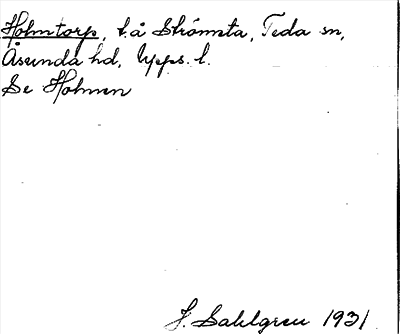 Holmtorp, t. å Strömsta, Teda sn,
Åsunda hd, Upps. l.
Se Holmen
J. Sahlgren 1931